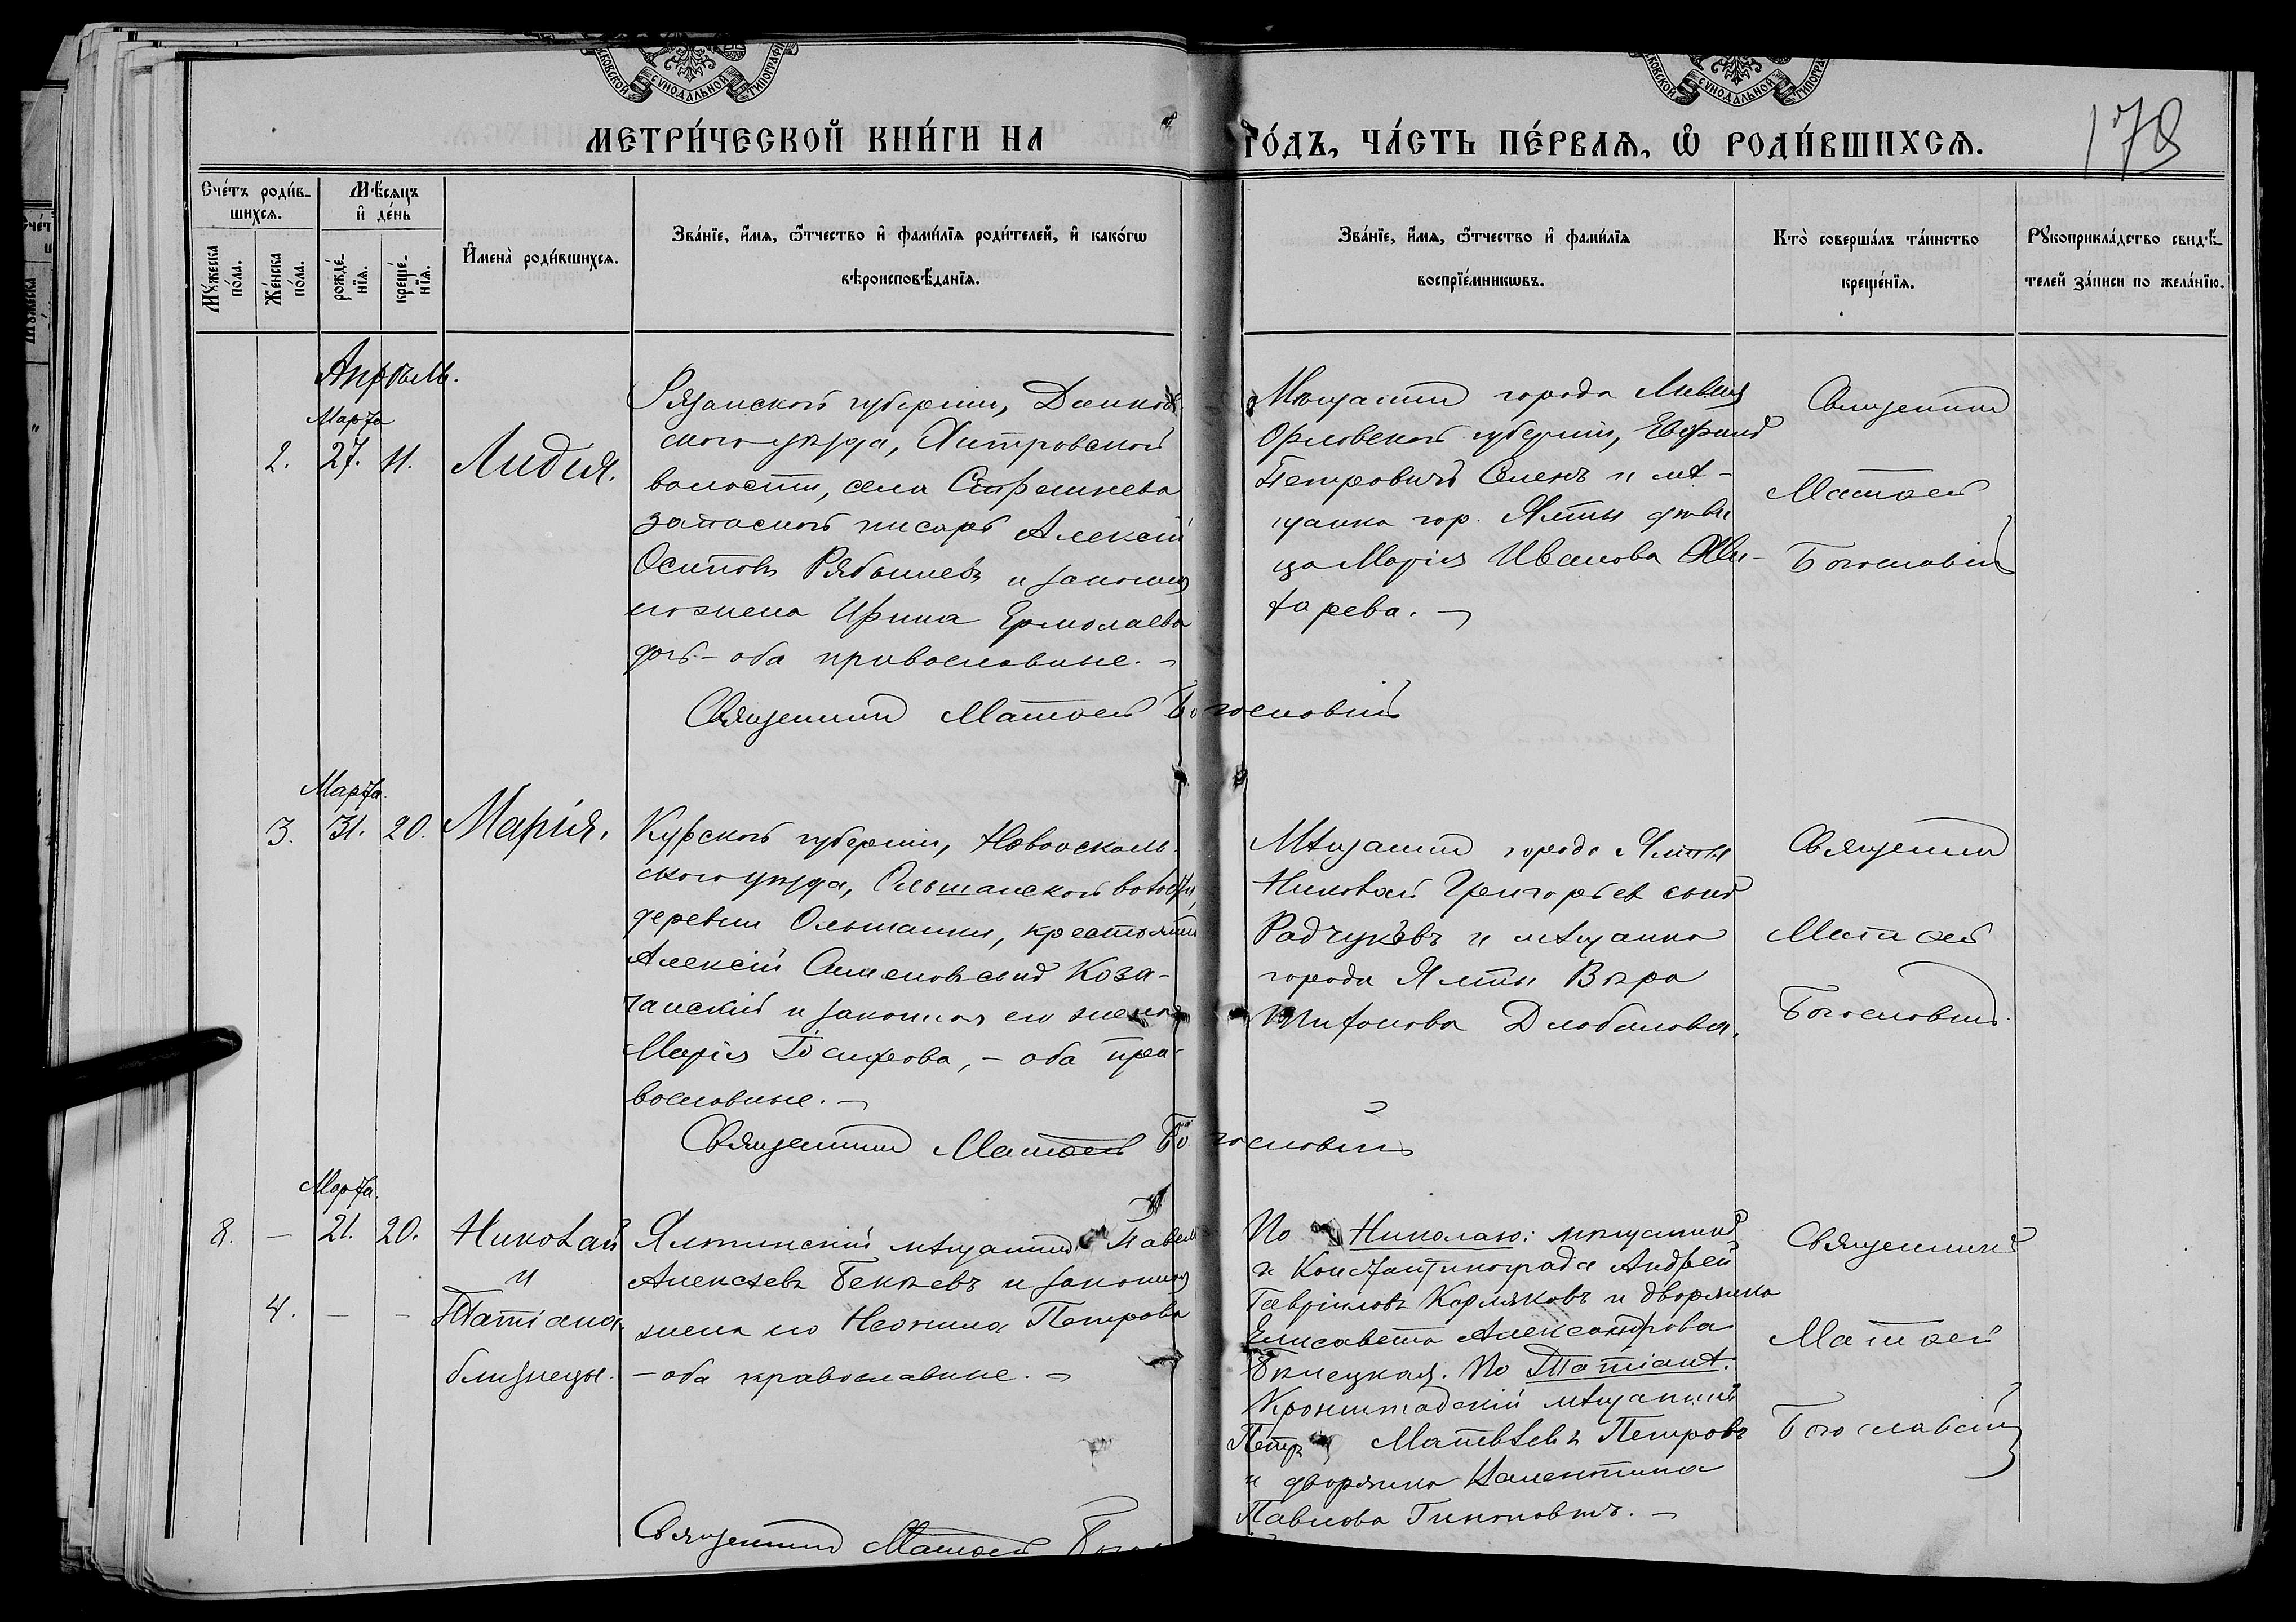 МЕТРИ́ЧЕСКОЙ КНИ́ГИ НА ГО́ДЪ, ЧА́СТЬ ПЕ́РВАѦ, Ѽ РОДИ́ВШИХСѦ.
178
Сче́тъ роди́в-
шихсѧ.
Му́жеска
по́ла.
Же́нска
по́ла.
Мѣ́сѧцъ
и҆ де́нь
рожде́-
нїѧ.
креще́-
нїѧ.
И҆мена̀ роди́вшихсѧ.
Зва́нїе, и҆́мѧ, ѻ҆́тчество и҆ фами́лїѧ роди́телей, и҆ како́гѡ
вѣроисповѣ́данїѧ.
Зва́нїе, и҆́мѧ, ѻ҆́тчество и҆ фами́лїѧ
воспрїе́мникѡвъ.
Кто̀ соверша́лъ та́инство
креще́нїѧ.
Рꙋкоприкла́дство свидѣ́-
телей за́писи по жела́нїю.
Апрѣль.
Марта
2. 27. 11. Лидія.
Рязанской губерніи, Данков
скаго уѣзда, Хитровской
волости, села
запасной писарь Алексій
Осиповъ Рябышевъ и законная
его жена Ирина Ермолаева
дочь - оба православные. -
Мѣщанинъ города Ливны
Орловской губерніи,
Петровичъ и мѣ-
щанка гор. Ялты дѣви
ца Марія Иванова
тарева. -
Священникъ
Матѳей
Богословскій
Священникъ Матѳей Богословскій
Марта.
3. 31. 20. Марія.
Курской губерніи, Новоосколь-
скаго уѣзда, Ольшанской волости,
деревни Ольшанки, крестьянинъ
Алексій Симеоновъ сынъ Коза-
чанскій и законная его жена
Марія Іосифова, - оба пра-
вославные. -
Мѣщанинъ города Ялты
Николай Григорьев сынъ
Радчуковъ и мѣщанка
города Ялты Вѣра
Длобанова.
Священникъ
Матѳей
Богословскій
Священникъ Матѳей Богословскій
Марта.
8. - 21. 20. Николай
и
4. - - Татіана,
близнецы.
Ялтинскій мѣщанинъ Павелъ
Алексѣевъ и законная
жена его Неонила Петрова
- оба православные. -
По Николаю: мѣщанинъ
г. Константинограда Андрей
Гавріиловъ Кормяковъ и дворянка
Елисавета Александрова
По Татіанѣ:
Кронштадскій мѣщанинъ
Петръ Матвѣевъ Петровъ
и дворянка Валентина
Павлова
Священникъ
Матѳей
Богословскій
Священникъ Матѳей